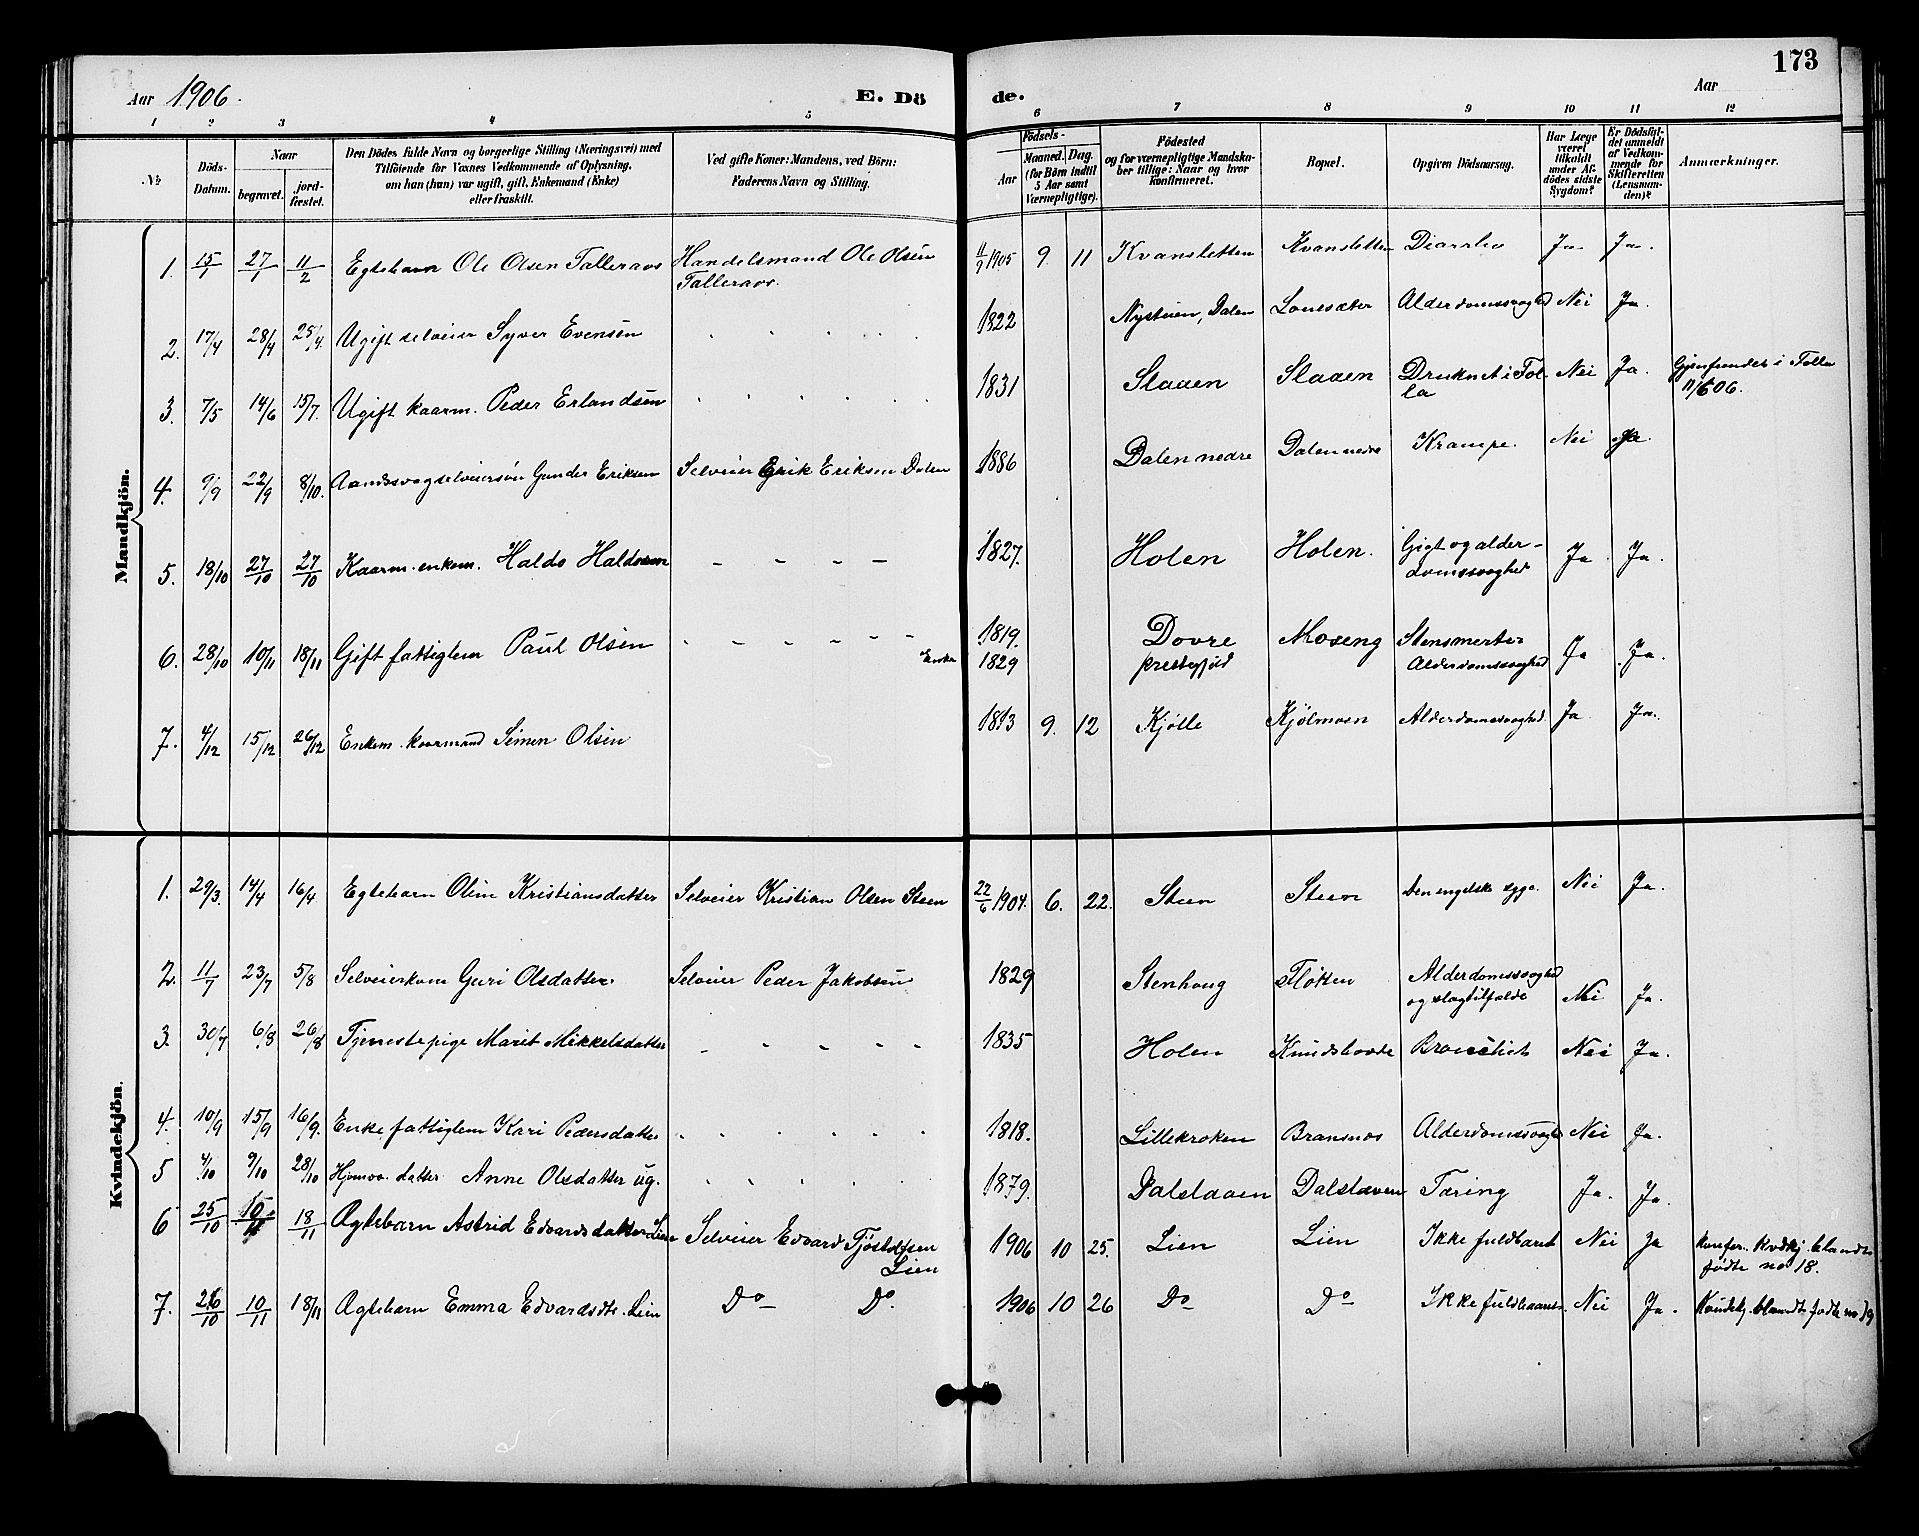 173
Aar 1906.
E. Dö
de.
Aar
1 2 3 4 5 6 7 8 9 10 11 12
No
Döds-Datum.
Naar
begravet.
jord-fæstet.
Den Dödes fulde Navn og borgerlige Stilling (Næringsvei) med
Tilföiende for Voxnes Vedkommende af Oplysning,
om han (hun) var ugift, gift, Enkemand (Enke)
eller fraskilt.
Ved gifte Koner: Mandens, ved Börn:
Faderens Navn og Stilling.
Födsels-
Aar
Maaned. Dag.
(for Börn indtil
5 Aar samt
Værnepligtige).
Födested
og for værnepligtige Mandska-
ber tillige: Naar og hvor
konfirmeret.
Bopæl.
Opgiven Dödsaarsag.
Har Læge
været
tilkaldt
under Af-
dödes sidste
Sygdom?
Er Dödsfal-
det anmeldt
af Vedkom-
mende for
Skifteretten
(Lensman-
den)?
Anmærkninger.
Mandkjön.
1. 15/1 27/1 11/2 Egtebarn Ole Olsen Talleraas Handelsmand Ole Olsen Talleraas. 11/9 1905 9. 11 Kvansletten Kvansletten Diarrho Ja Ja.
2. 17/4 28/4 25/4. Ugift selveier Syver Evensen 1822 Nystuen, Dalen Lonesæter Alderdomssvaghed Nei Ja.
3. 7/5 14/6 15/7. Ugift kaarm. Peder Erlandsen 1831 Slaaen Slaaen Druknet i Tolla Nei Ja. Gjenfunden i Tolla 11/6 06.
4. 9/9 22/9 8/10. Aandssvag selveiersøn Gunder Eriksen Selveier Erik Eriksen Dalen 1886 Dalen nedre Dalen nedre Krampe. Nei Ja.
5. 18/10 27/10 27/10 Kaarm. enkem. Haldo Haldosen - - - - 1827. Holen Holen. Gigt og alderdomssvaghed Ja Ja.
6. 28/10 10/11 18/11 Gift fattiglem Paul Olsen - - - - - - 1819. 1829 Dovre prestegjeld Moseng Alderdomssvaghed Ja Ja.
7. 4/12 15/12 26/12 Enkem. kaarmand Simen Olsen 1813 9. 12 Kjølle Kjølmoen Alderdomssvaghed Ja Ja.
Kvindekjön.
1. 29/3. 14/4 16/4 Egtebarn Oline Kristiansdatter Selveier Kristian Olsen Steen 22/6 1904. 6. 22. Steen Steen Den engelske syge. Nei Ja.
2. 11/7 23/7 5/8 Selveierkone Guri Olsdatter. Selveier Peder Jakobsen 1829 Stenhaug Fløtten Alderdomssvaghed og slagtilfælde Nei Ja.
3. 30/7 6/8 26/8 Tjenestepige Marit Mikkelsdatter - - - - - 1835 Holen Knudshovde Nei Ja.
4. 10/9 15/9 16/9. Enke fattiglem Kari Pedersdatter 1818. Lillekroken Bransnos Alderdomssvagh Nei Ja.
5 4/10 9/10 28/10 Hjemv. datter Anne Olsdatter ug. 1879. Dalslaaen Dalslaaen Tæring Ja. Ja.
6 25/10 10/11 18/11 Ægtebarn Astrid Edvardsdatter Lien Selveier Edvard Tjøstolfsen Lien 1906 10 25. Lien Lien Ikke fuldbaaret Nei Ja Konfer. Kvdkj. blandt fødte no 18.
7. 26/10 10/11 18/11 Ægtebarn Emma Edvardsdtr. Lien Do Do 1906 10 26 Do Do Ikke fuldbaaret. Nei Ja. Kvindekj. blandt fødte no 19